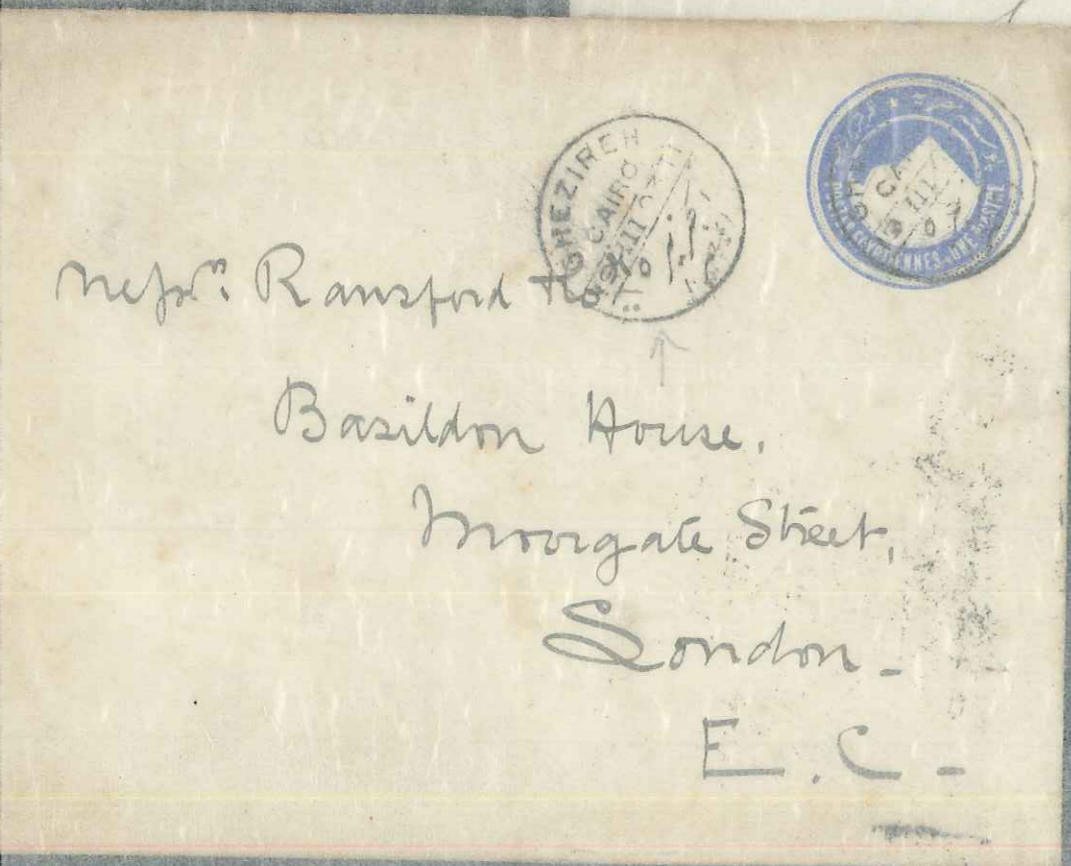 GHEZIREH
CAIRO
POSTES EGYPTIENNES . UNE PIASTRE
Messrs. Ransford &
Basildon House,
Moorgate Street,
London -
E. C -